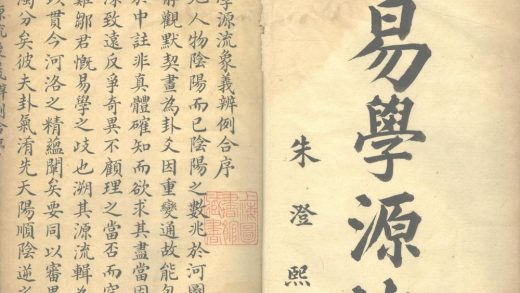 易學源
朱澄熙
學源流象義辨例合序
人物陰陽而已陰陽之數兆於河圖
觀默契畫為卦爻因重變通故能包
於中註非真體確知而欲求其盡當因
深致遠反爭奇異不顧理之當否而穿
難鄒君慨易學之歧也溯其源流輯為
以貫今河洛之精蘊闡矣要同以審異
濁分矣彼夫卦氣淆先天陽順陰逆之
上海圖書館藏書